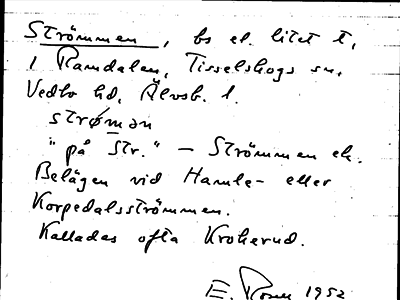 Strömmen, bs el. litet t.
i Ramdalen, Tisselskogs sn.
Vedbo hd, Älvsb. l.
strømən
"på Str." – Strömmen ek.
Belägen vid Hamle- eller
Korpedalsströmmen.
Kallades ofta Krokerud.
E. 1952